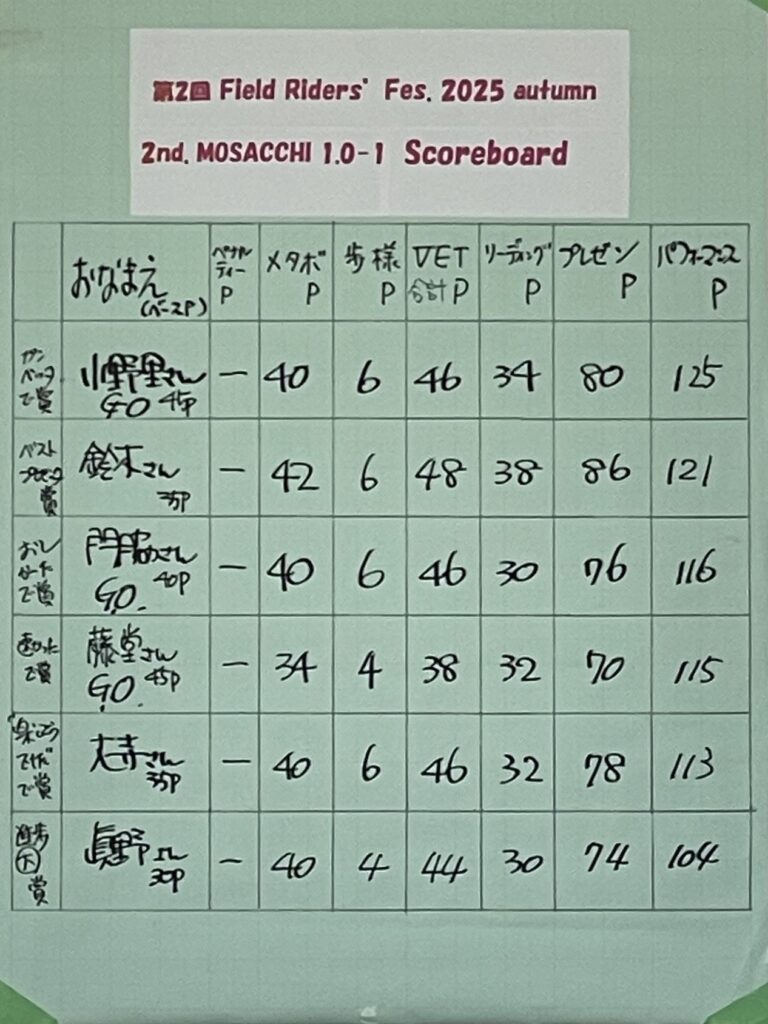 第2回 Field Riders' Fes. 2025 autumn
2nd. MOSACCHI 1.0-1 Scoreboard
おなまえ (ベースP) ペナルティー P メタボ P 歩様 P VET 合計 P リーディング P プレゼン P パフォーマンス P
ガンバッタで賞 小野里さん GO 45P - 40 6 46 34 80 125
ベストプレゼンター賞 鈴木さん 35P - 42 6 48 38 86 121
おしかったで賞 門脇さん GO. 40P - 40 6 46 30 76 116
速かったで賞 藤堂さん GO. 45P - 34 4 38 32 70 115
で賞 さん 35P - 40 6 46 32 78 113
賞 眞野さん 30P - 40 4 44 30 74 104